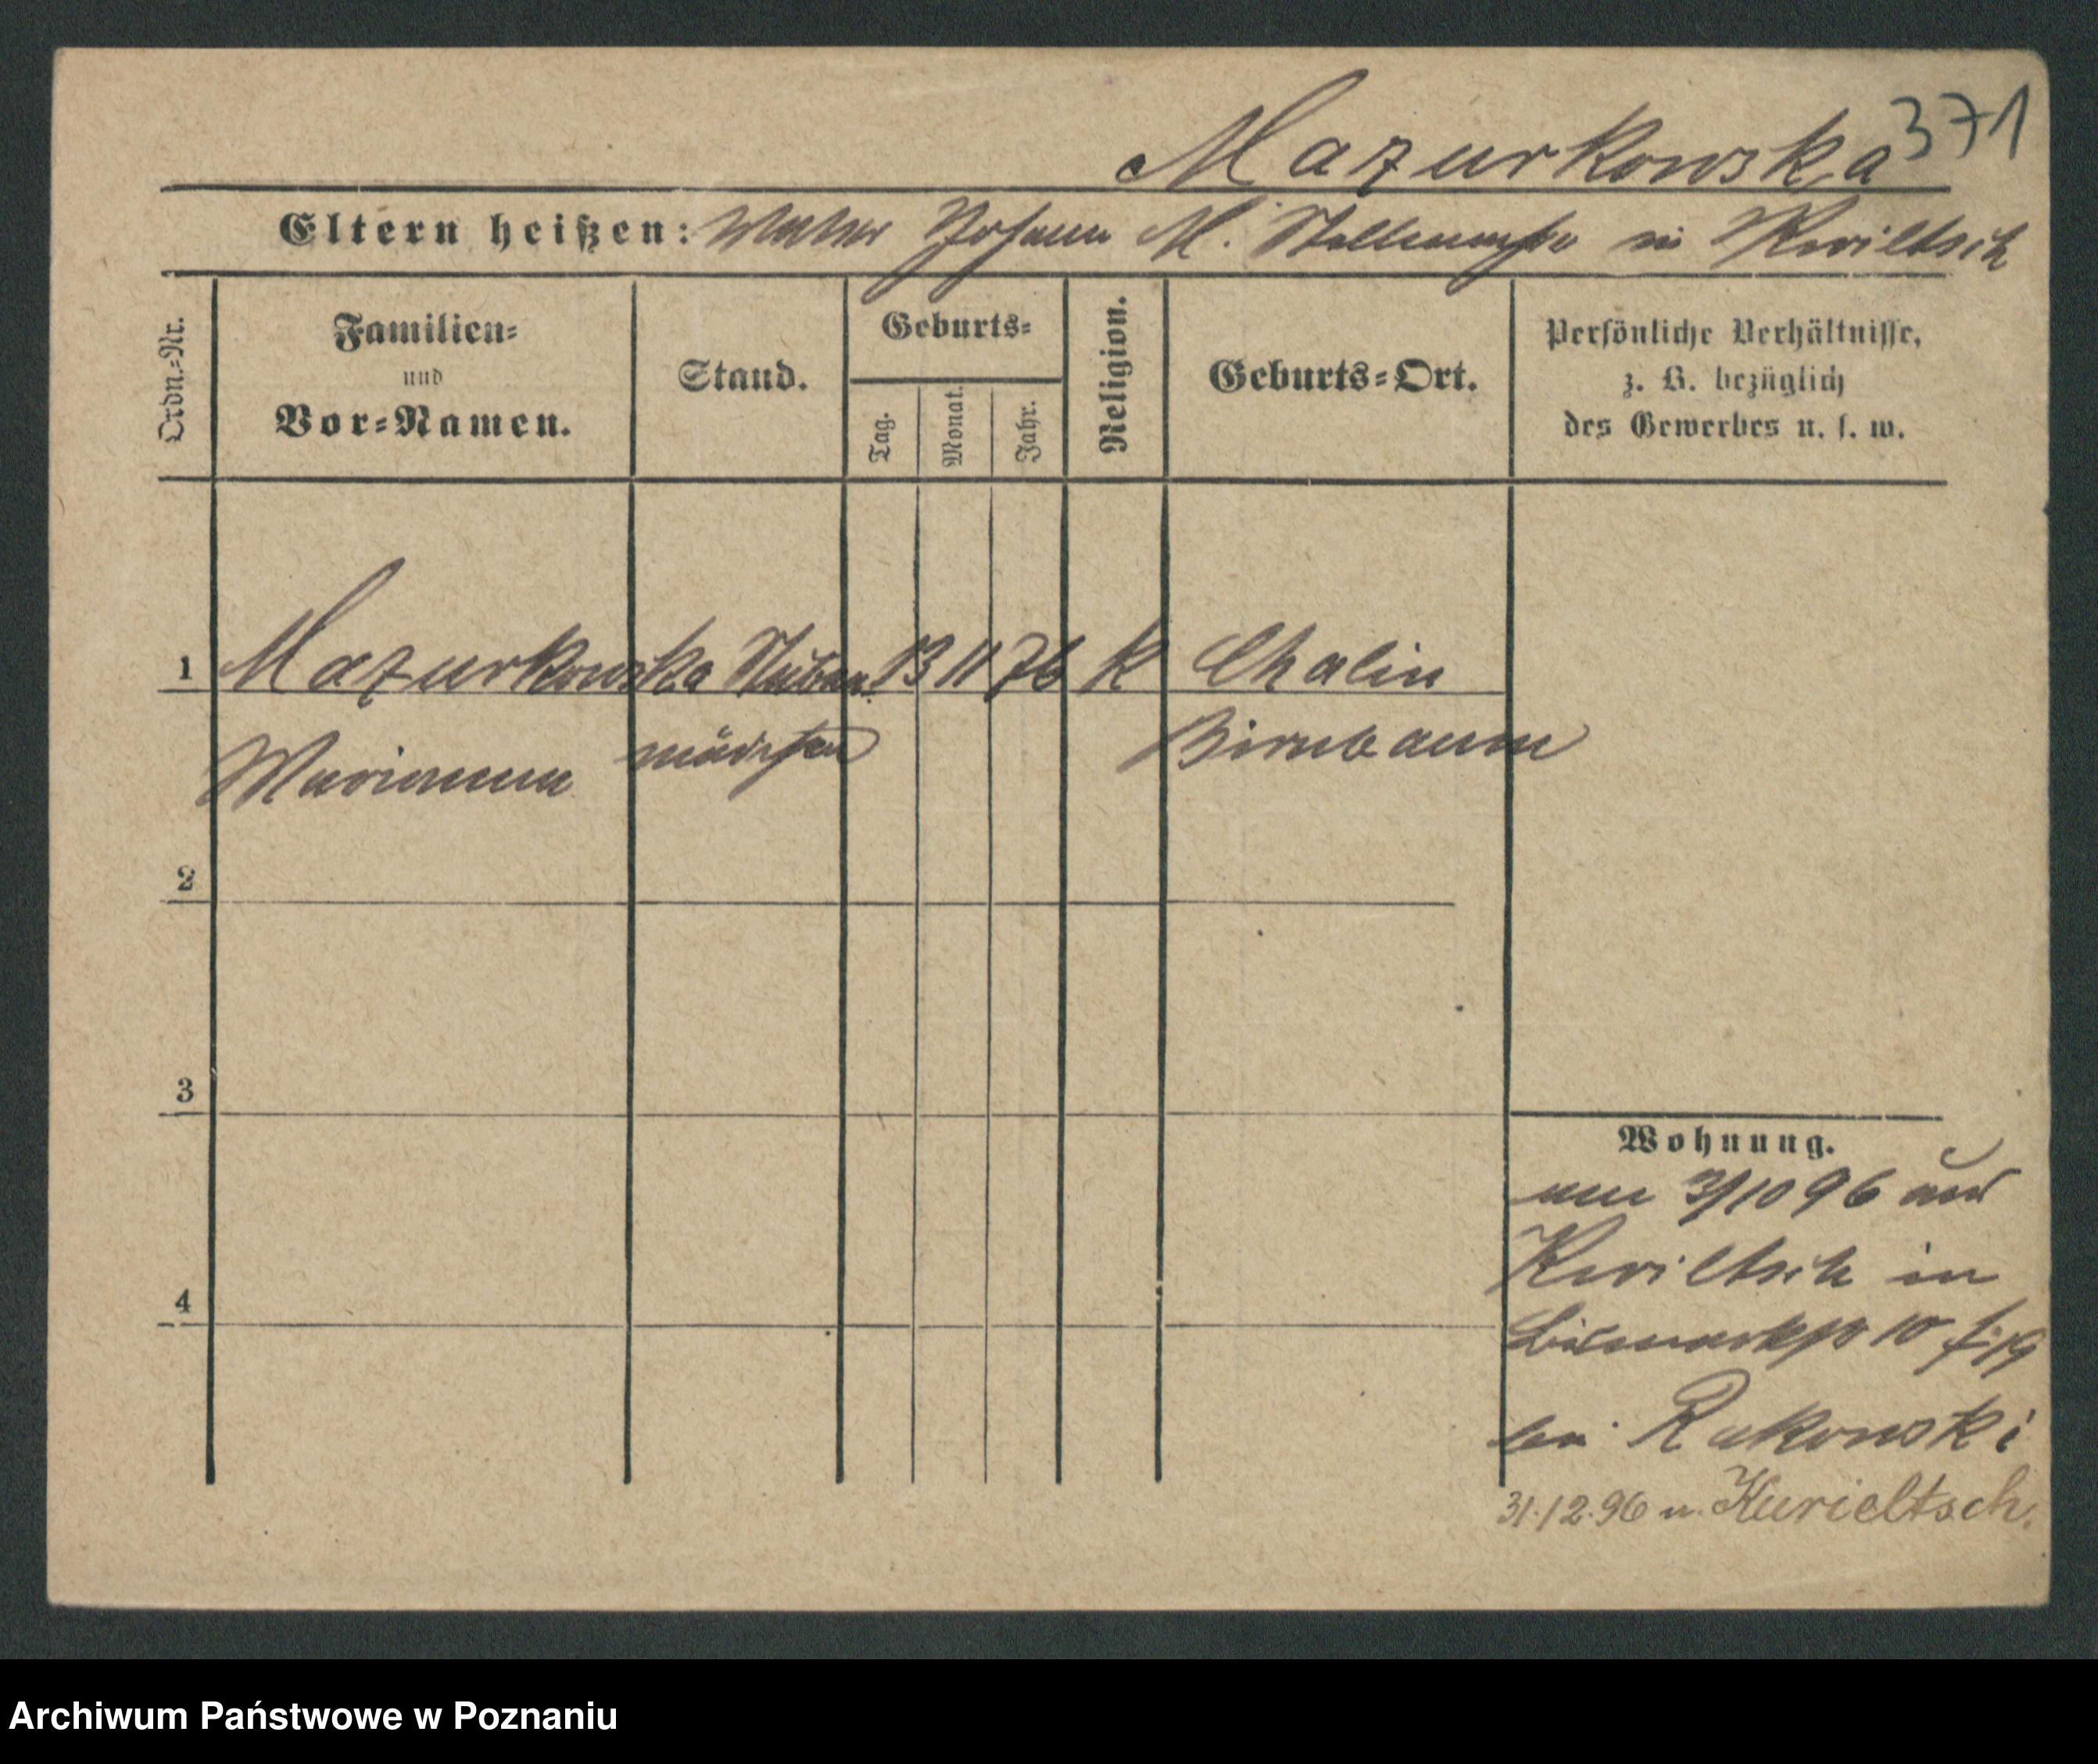 371
Mazurkowska
Eltern heißen: Vater Johann M. in Kwiltsch
Ordn.-Nr.
Familien-
und
Vor-Namen.
Stand.
Geburts-
Tag.
Monat.
Jahr.
Religion.
Geburts-Ort.
Persönliche Verhältnisse,
z. B. bezüglich
des Gewerbes u. s. w.
1 Mazurkowska Stuben 13 11 76 K Chalin
Marianna mädchen Birnbaum
2
3
4
Wohnung.
am 3/10 96 aus
Kwiltsch in
10
bei Rakowski
31.12.96 n. Kurieltsch.
Archiwum Państwowe w Poznaniu